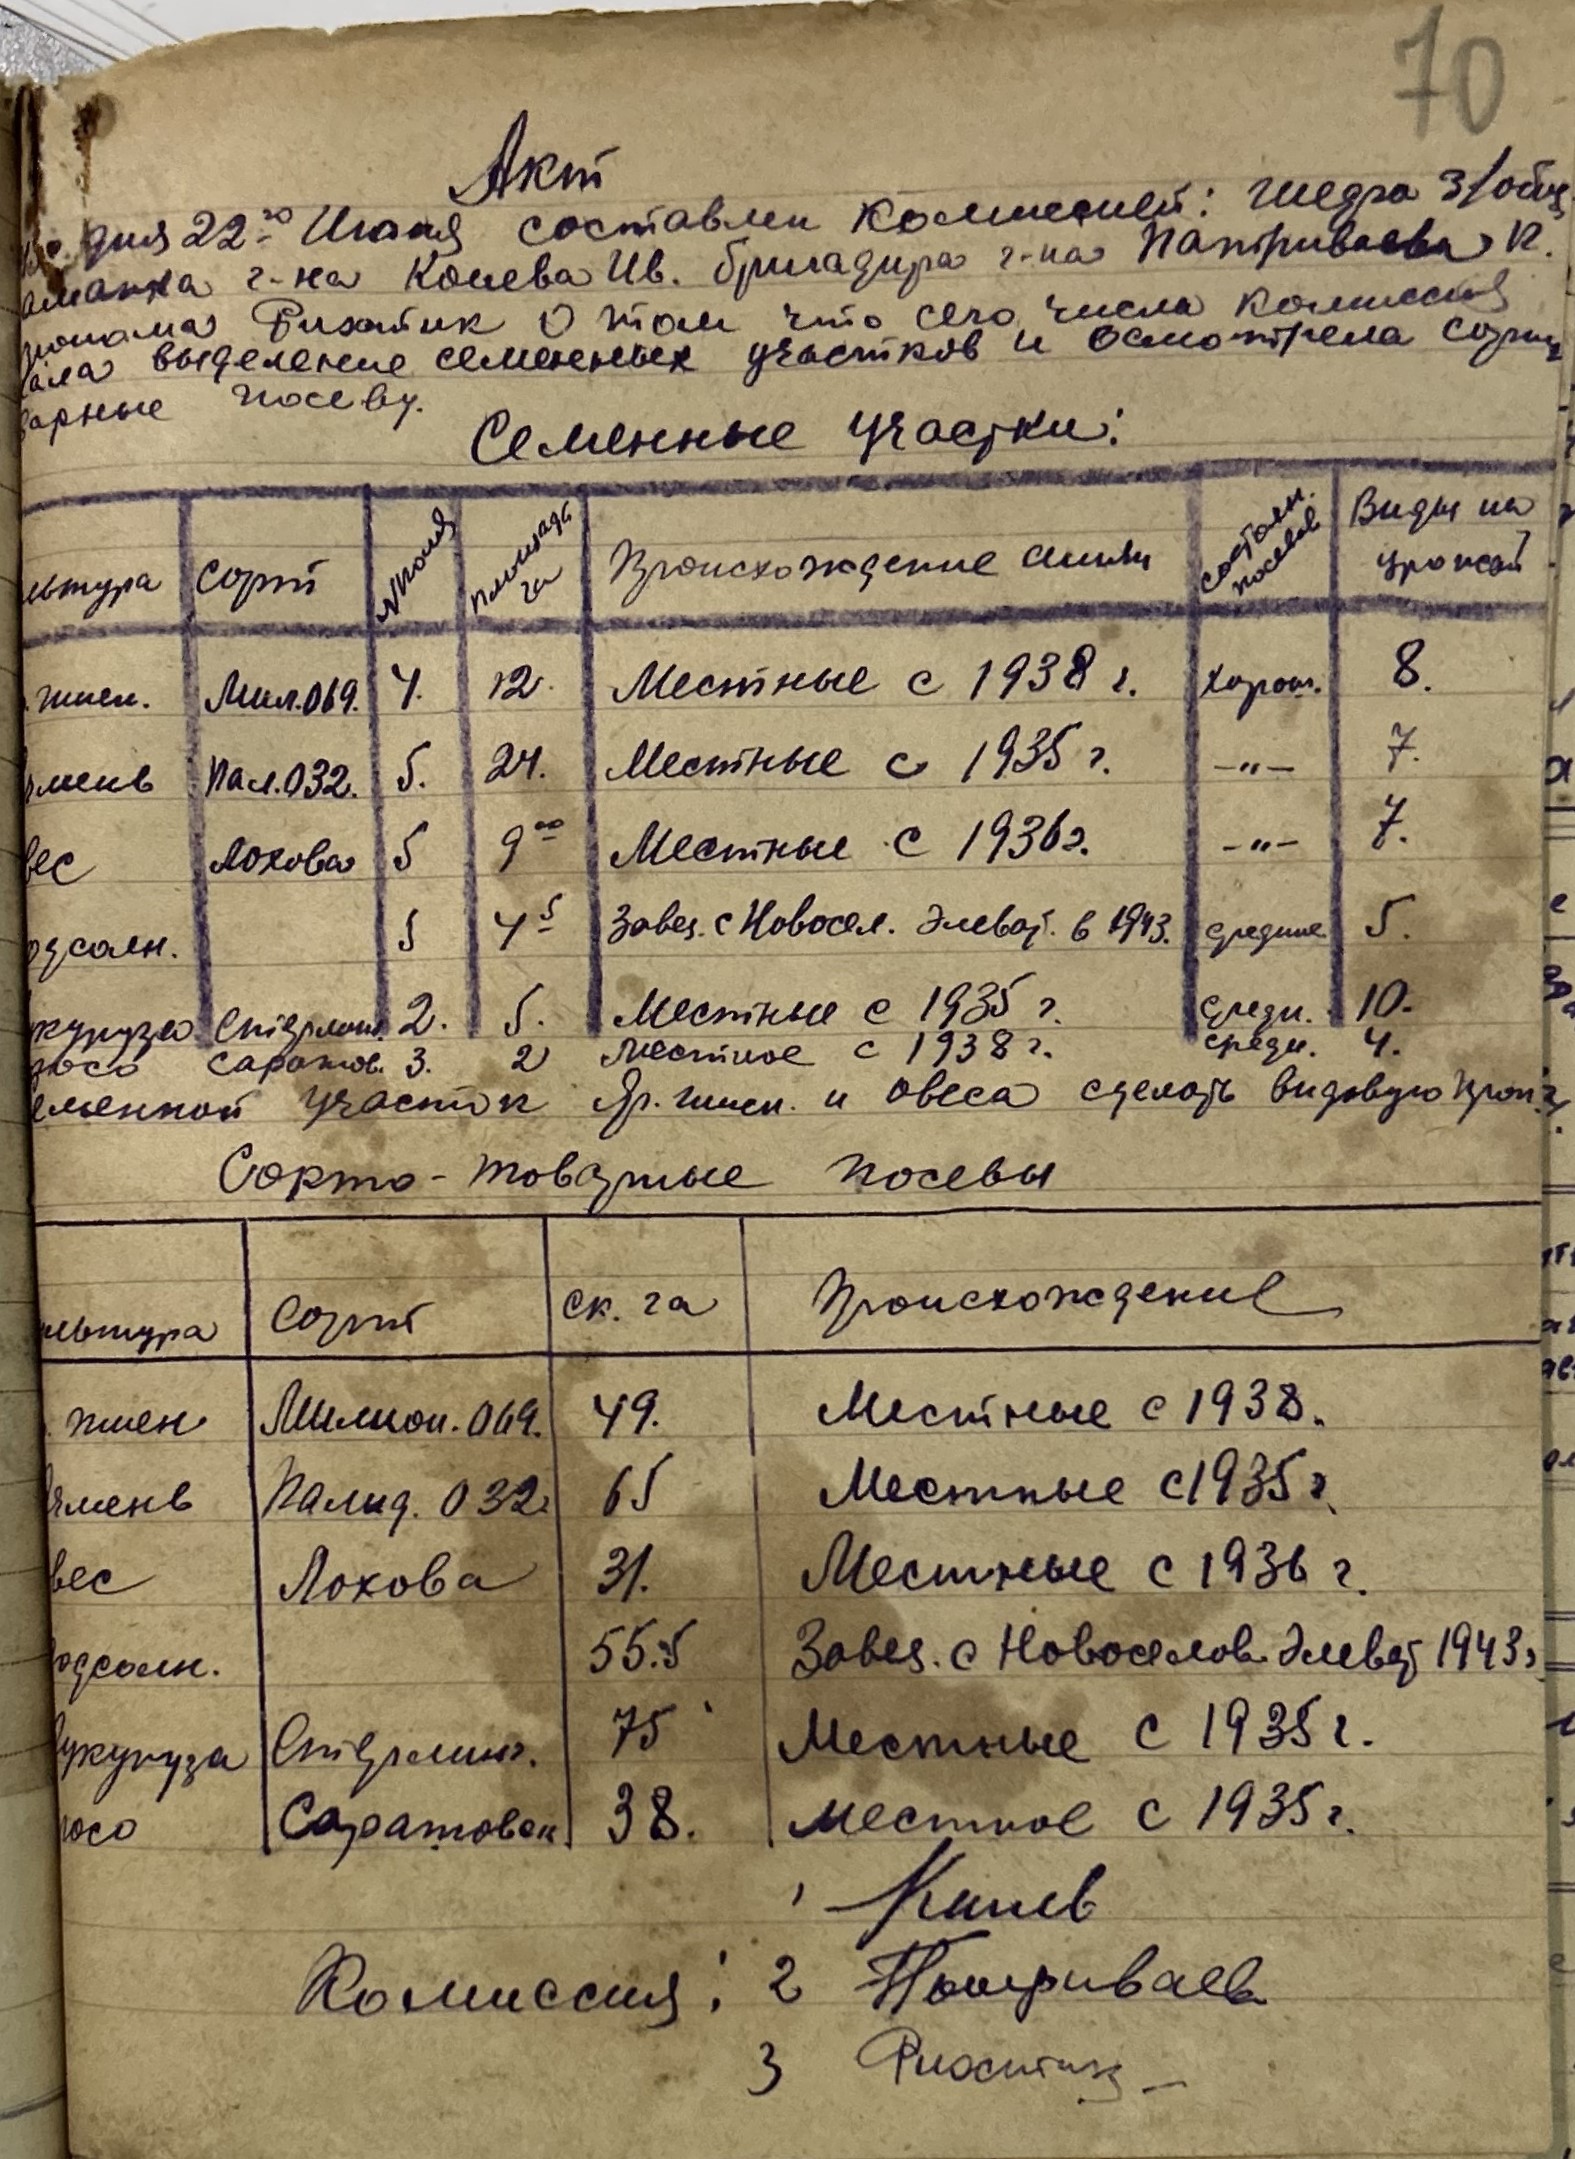 70
Акт
дня 22го Июня составлен комиссией: шефа з/общ.
г-на Конева Ив. бригадира г-на Патриваева П.
Рихитик О том что сего числа комиссия
выделение семенных участков и осмотрела сорт
варные посеву.
Семенные участки:
льтура Сорт № поля площадь га Происхождение семян состоян. посевов Виды на урожай
. пшен. Мил.069. 4. 12. Местные с 1938 г. хорош. 8.
чмень Пал.032. 5. 24. Местные с 1935 г. -"- 7.
вес Лохова 5 9оо Местные с 1936 г. -"- 7.
одсолн. 5 4 5 Завез. с Новосел. Элеват. в 1943. средние 5.
кукуруза Стерлинг. 2. 5. Местные с 1935 г. средн. 10.
росо Саратов. 3. 2 местное с 1938 г. средн. 4.
еменной участок Яр. пшен. и овеса сделать видовую проп.
Сорто-товарные посевы
льтура Сорт ск. га Происхождение
. пшен Милион.069. 49. Местные с 1938.
чмень Палид. 032. 65 Местные с 1935 г.
вес Лохова 31. Местные с 1936 г.
одсолн. 55.5 Завез. с Новоселов. Элеват 1943 г
укуруза Стерлинг. 75 Местные с 1935 г.
росо Саратовск 38. местное с 1935 г.
1 Конев
Комиссия: 2 Патриваев
3